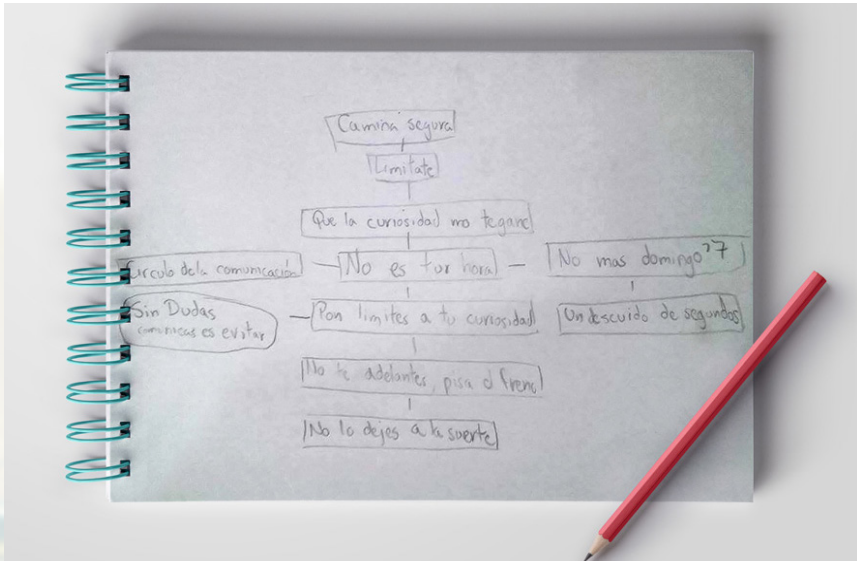 Camina segura
Limitate
Que la curiosidad no te gane
Circulo de la comunicación
No es tur hora
No mas domingo 7
Sin Dudas
comunicas es evitar
Pon limites a tu curiosidad
Un descuido de segundos
No te adelantes, pisa el freno
No lo dejes a la suerte